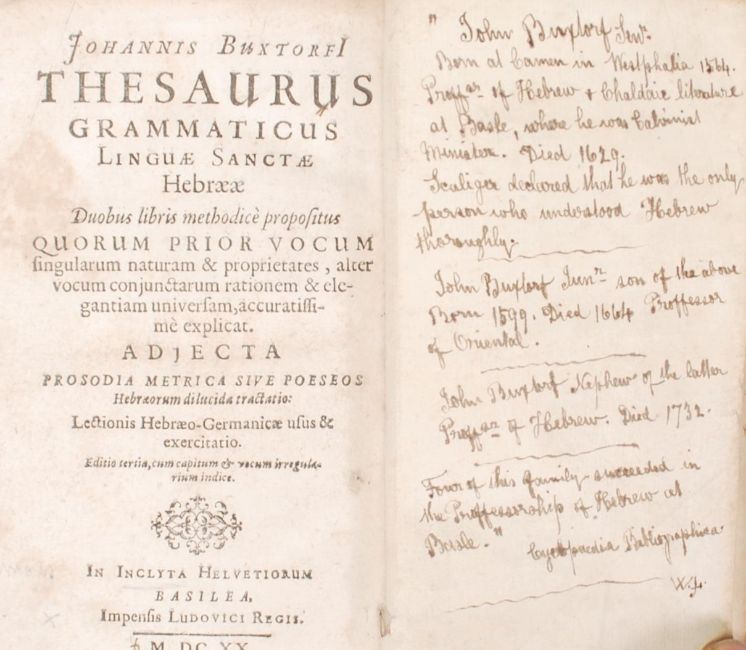 JOHANNIS BUXTORFI
THESAURUS
GRAMMATICUS
LINGUÆ SANCTÆ
Hebrææ
Duobus libris methodicè propositus
QUORUM PRIOR VOCUM
singularum naturam & proprietates, alter
vocum conjunctarum rationem & ele-
gantiam universam, accuratissi-
mè explicat.
ADJECTA
PROSODIA METRICA SIVE POESEOS
Hebræorum dilucida tractatio:
Lectionis Hebræo-Germanicæ usus &
exercitatio.
Editio tertia, cum capitum & vocum irregula-
rium indice.
IN INCLYTA HELVETIORUM
BASILEA,
Impensis LUDOVICI REGIS.
M DC XX
" John Buxtorf Senr.
Born at Camen in Westphalia 1564.
Proffar of Hebrew & Chaldaic literature
at Basle, where he was Calvinist
Minister. Died 1629.
Scaliger declared that he was the only
person who understood Hebrew
thoroughly.
John Buxtorf Junr son of the above
Born 1599. Died 1664 Proffessor
of Oriental.
John Buxtorf Nephew of the latter
Proffar of Hebrew. Died 1732.
Four of this family succeeded in
the Proffessorship of Hebrew at
Basle. "
Cyclopædia Bibliographica.
W.J.